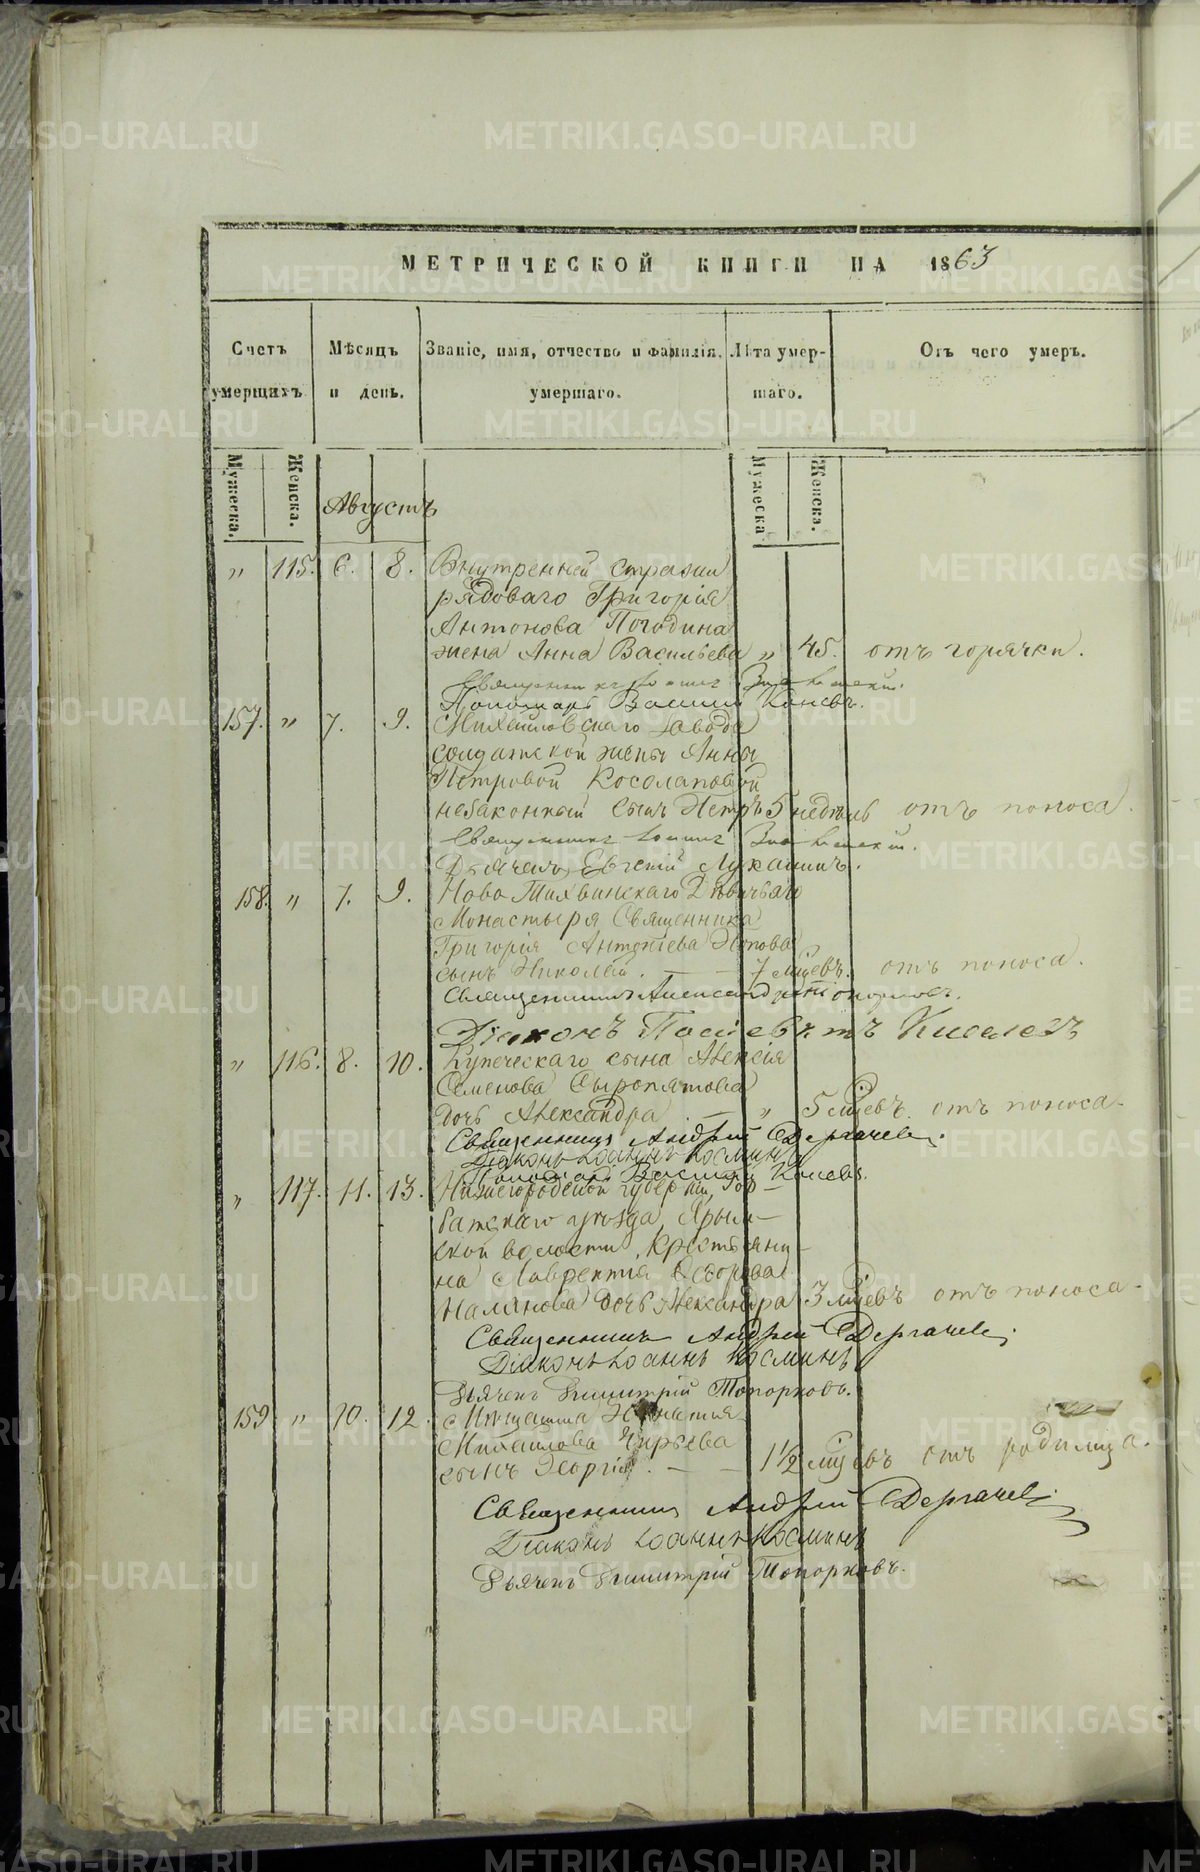 МЕТРИЧЕСКОЙ КНИГИ НА 1863
Счетъ умерщихъ
Мѣсяцъ и день.
Званіе, имя, отчество и фамилія умершаго.
Лѣта умершаго.
Отъ чего умеръ.
Мужеска. Женска. Августъ Мужеска Женска.
" 115. 6. 8. Внутренней стражи
рядоваго Григорія
Антонова Погодина
жена Анна Васильева " 45. отъ горячки.
Священникъ Іоаннъ
Пономарь Василій Коневъ.
157. " 7. 9. Михайловскаго завода
солдатской жены Анны
Петровой Косолаповой
незаконный сынъ Петръ 5 недѣль отъ поноса.
Священникъ Іоаннъ
Дьячекъ Евгеній Лукашинъ.
158. " 7. 9. Ново Тихвинскаго Дѣвичьаго
Монастыря Священника
Григорія Антоніева Попова
сынъ Николай. — — 7 мцевъ. отъ поноса.
Священникъ Александръ Топорковъ.
Діаконъ Киселевъ
" 116. 8. 10. Купеческаго сына Алексія
Семенова Сыропятова
дочь Александра. — " 5 мцевъ. отъ поноса-
Священникъ Андрей Дергачевъ.
Діаконъ Іоаннъ Косминъ
Пономарь Василій Коневъ.
" 117. 11. 13. Нижегородской губерніи, Гор-
батскаго уѣзда,
ской волости, Крестьяни-
на Лаврентія Егорова
Малянова дочь Александра 3 мцевъ отъ поноса-
Священникъ Андрей Дергачевъ.
Діаконъ Іоаннъ Косминъ
Дьячекъ Димитрій Топорковъ.
159 " 10. 12. Мѣщанина Игнатія
Михаилова Чирьева
сынъ Георгій. — — 1½ мцевъ отъ родимца.
Священникъ Андрей Дергачевъ
Діаконъ Іоаннъ Косминъ
Дьячекъ Димитрій Топорковъ.
METRIKI.GASO-URAL.RU